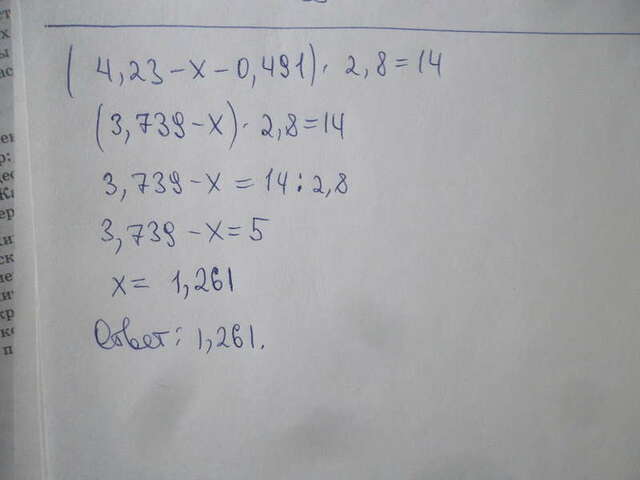 (4,23-x-0,491)·2,8=14
(3,739-x)·2,8=14
3,739-x=14:2,8
3,739-x=5
x= 1,261
Ответ: 1,261.